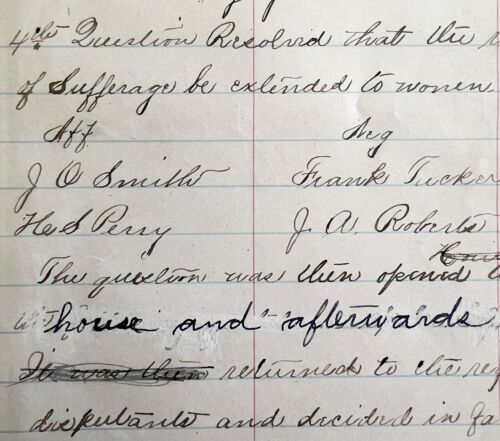 4th Question Resolved that the
of Sufferage be extended to women
Aff Neg
J O Smith Frank Tucker
H S Perry J. A. Roberts
The question was then opened
house and afterwards
It was then returned to the
disputants and decided in